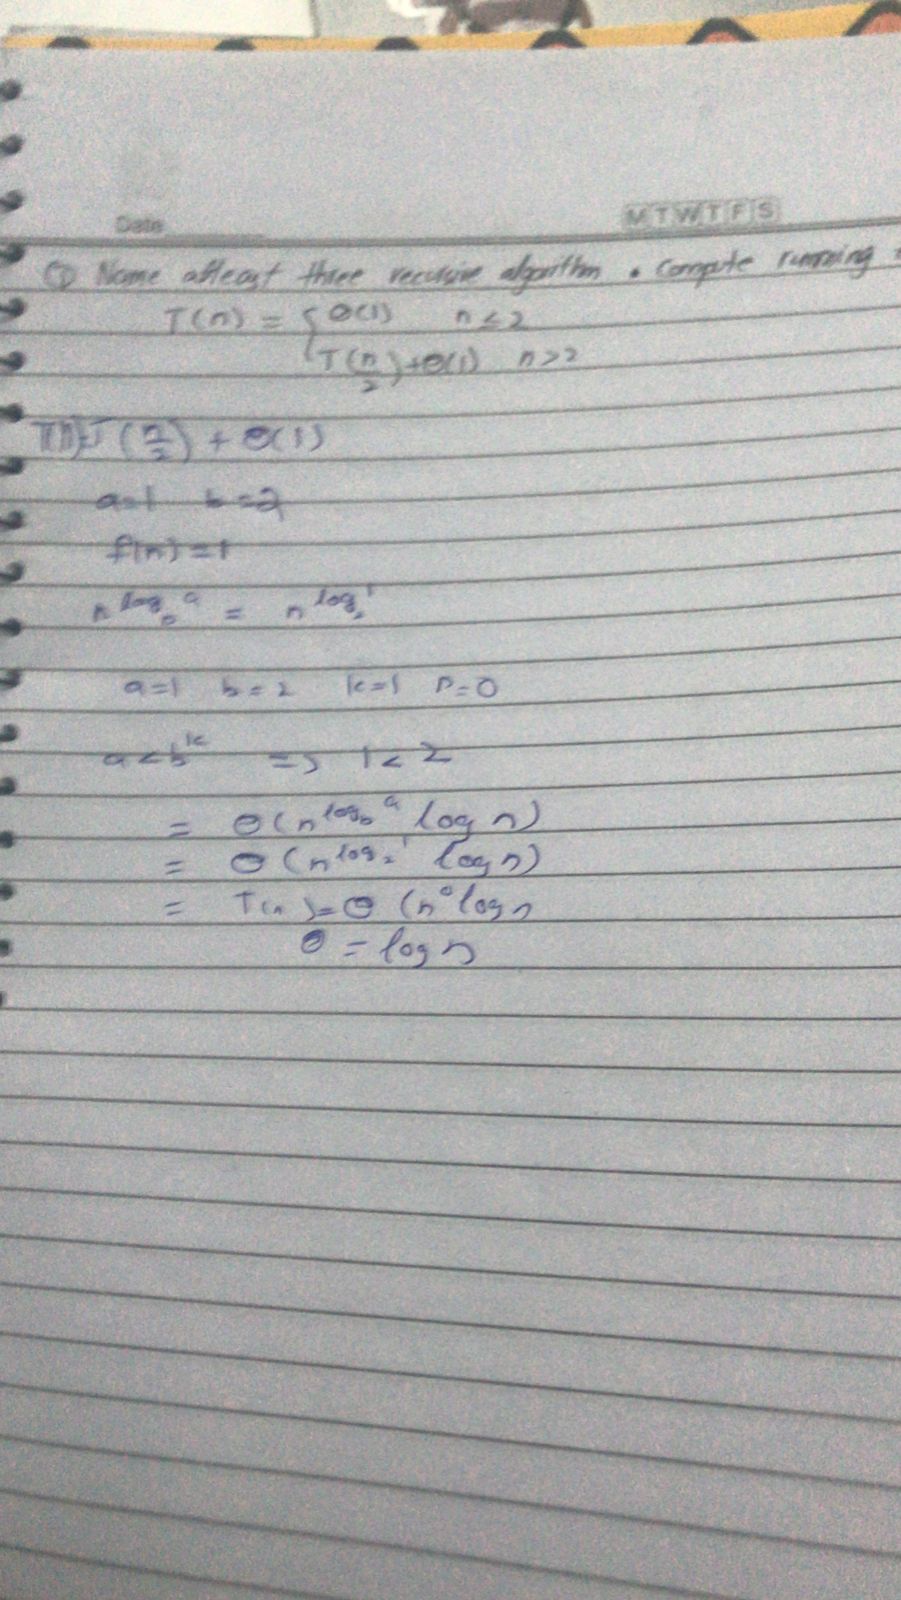 Date
M T W T F S
① Name atleast three recursive algorithm . compute running
T(n) = { Θ(1) n ≤ 2
T(n/2) + Θ(1) n > 2
T(n) = T(n/2) + Θ(1)
a=1 b=2
f(n) = 1
n^log_b a = n^log_2 1
a=1 b=2 k=1 P=0
a < b^k => 1 < 2
= Θ(n^log_b a log n)
= Θ(n^log_2 1 log n)
= T(n) = Θ (n^0 log n
Θ = log n